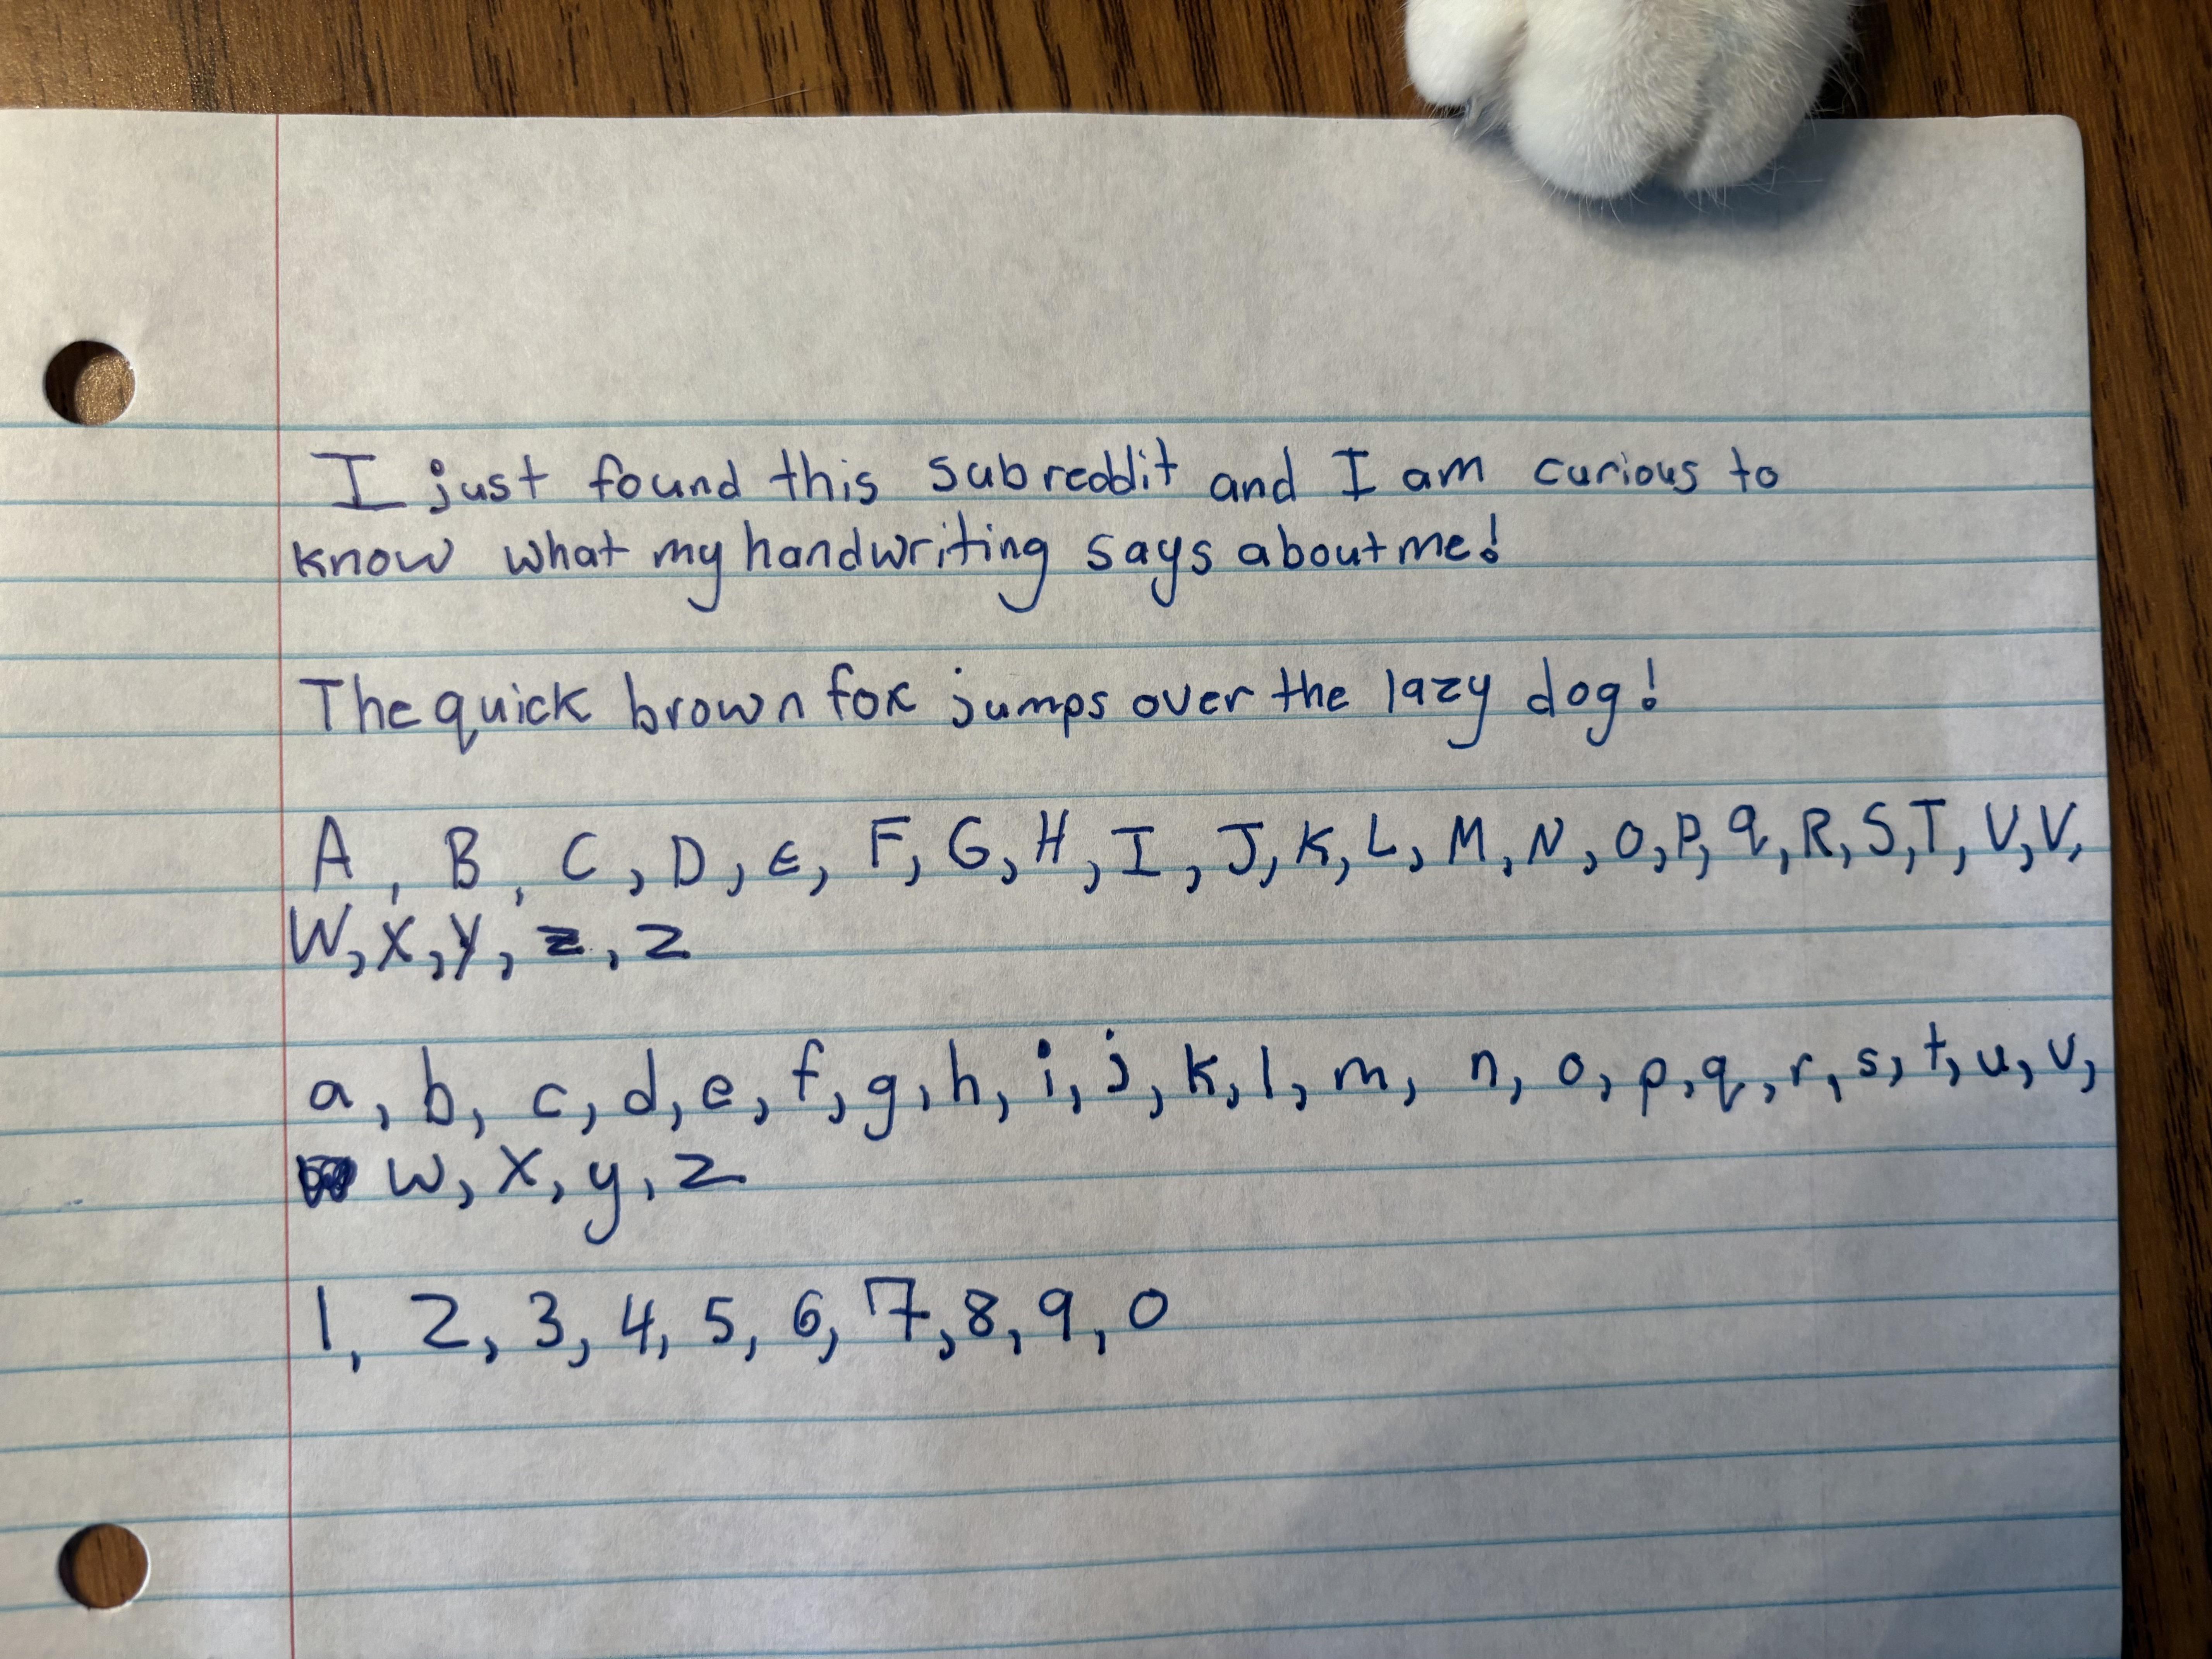 I just found this subreddit and I am curious to
know what my handwriting says about me!
The quick brown fox jumps over the lazy dog!
A, B, C, D, E, F, G, H, I, J, K, L, M, N, O, P, q, R, S, T, U, V,
W, X, Y, z, z
a, b, c, d, e, f, g, h, i, j, k, l, m, n, o, p, q, r, s, t, u, v,
w, x, y, z
1, 2, 3, 4, 5, 6, 7, 8, 9, 0